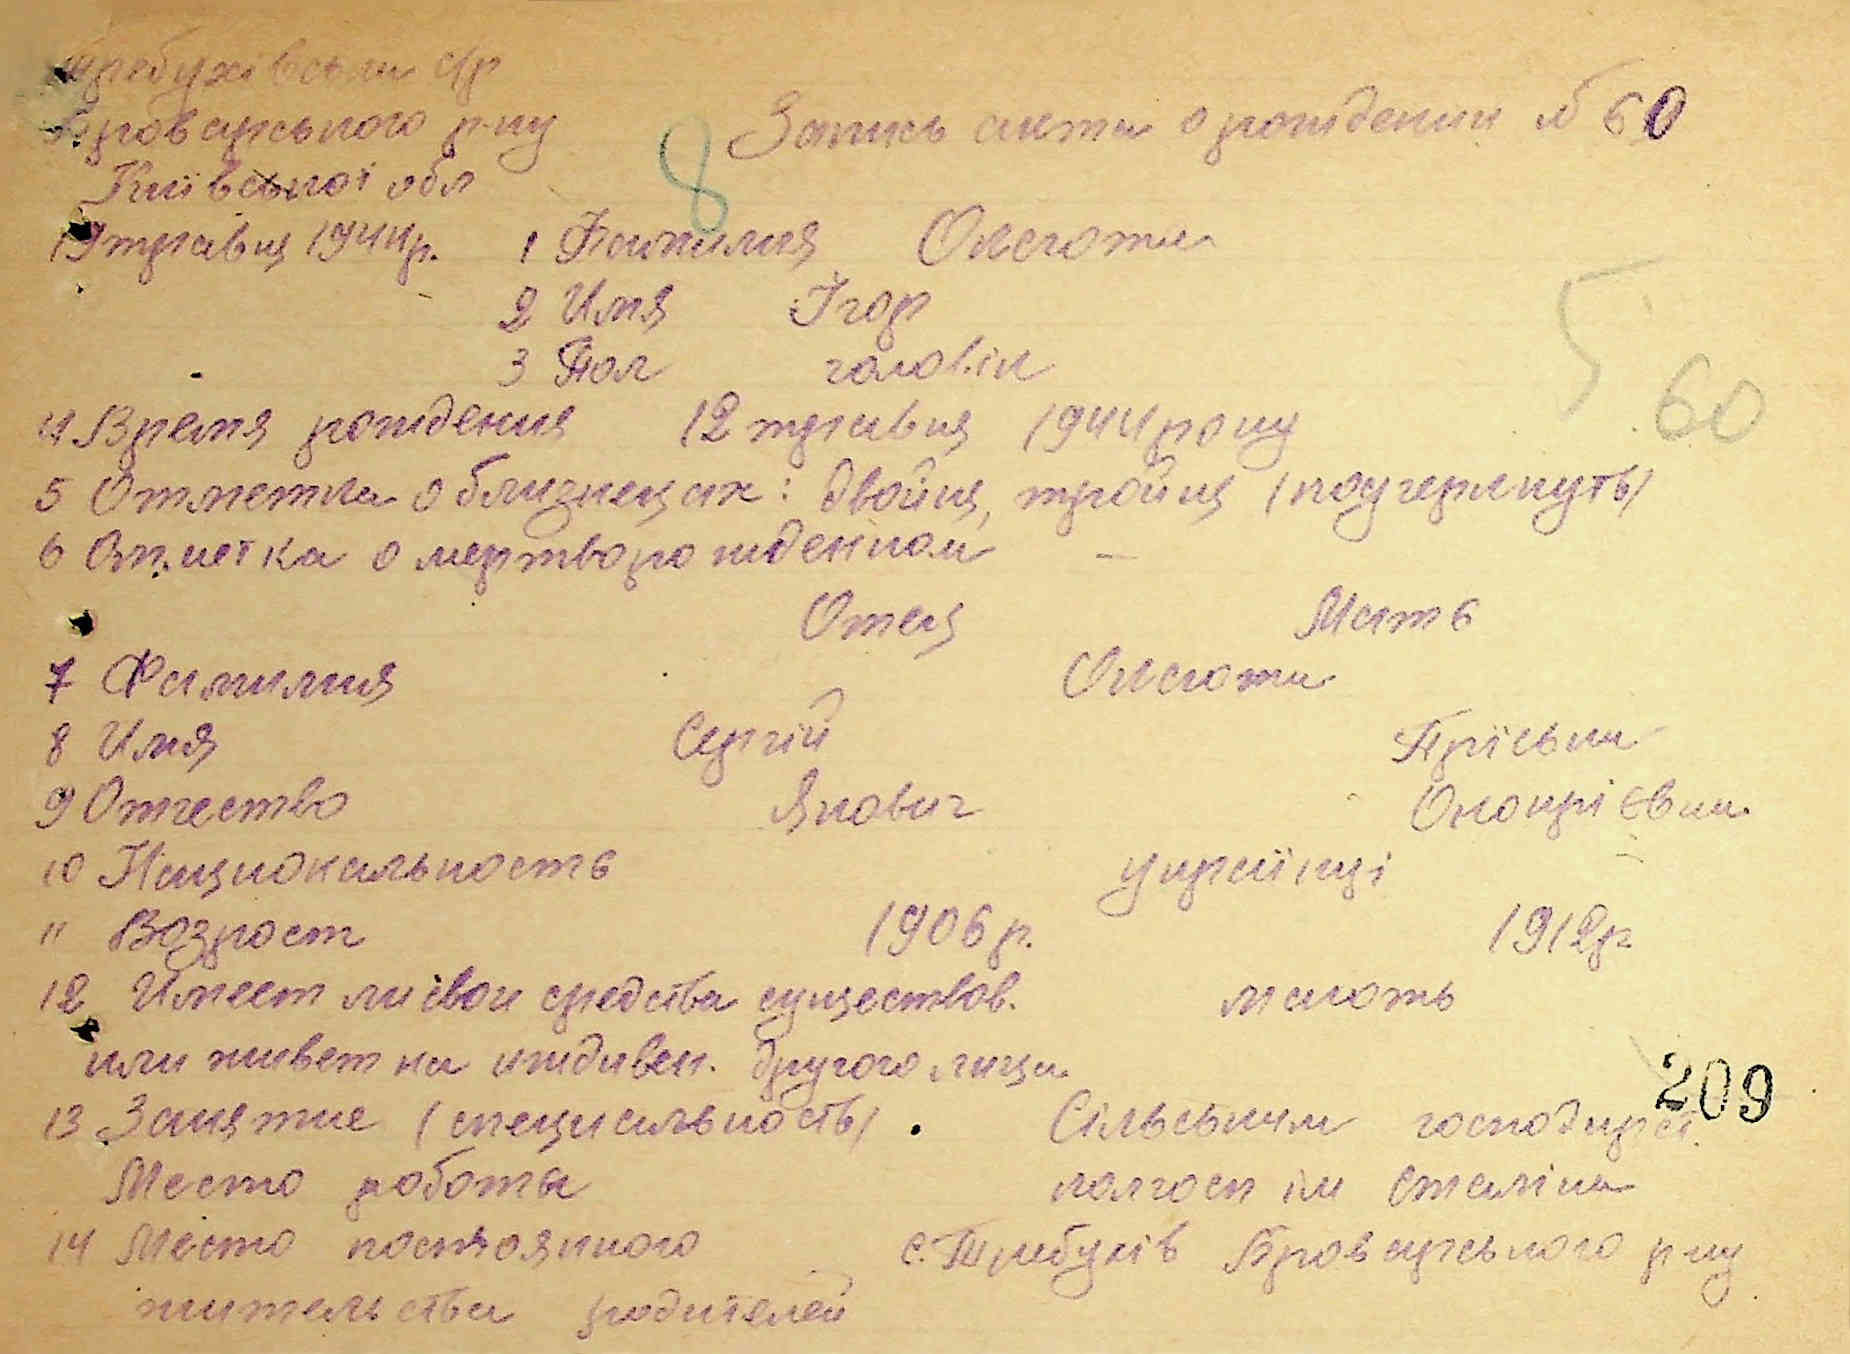 Требухівська с/р
Броварського р-ну
Київської обл
8
Запись акта о рождении № 60
19 травня 1944 р.
1 Фамилия
2 Имя Ігор
3 Пол чоловік
5
60
4 Время рождения 12 травня 1944 року
5 Отметка о близнецах: двойня, тройня (подчеркнуть)
6 Отметка о мертворожденном —
Отец Мать
7 Фамилия
8 Имя Сергій Пріська
9 Отчество Янович Онопрієвна
10 Национальность українці
11 Возраст 1906 р. 1912 р
12 Имеет ли свои средства существов. мають
или живет на иждивен. другого лица
209
13 Занятие (специальность) Сільським господарст.
Место работы колгосп ім Сталіна
14 Место постоянного с. Требухів Броварського р-ну
жительства родителей